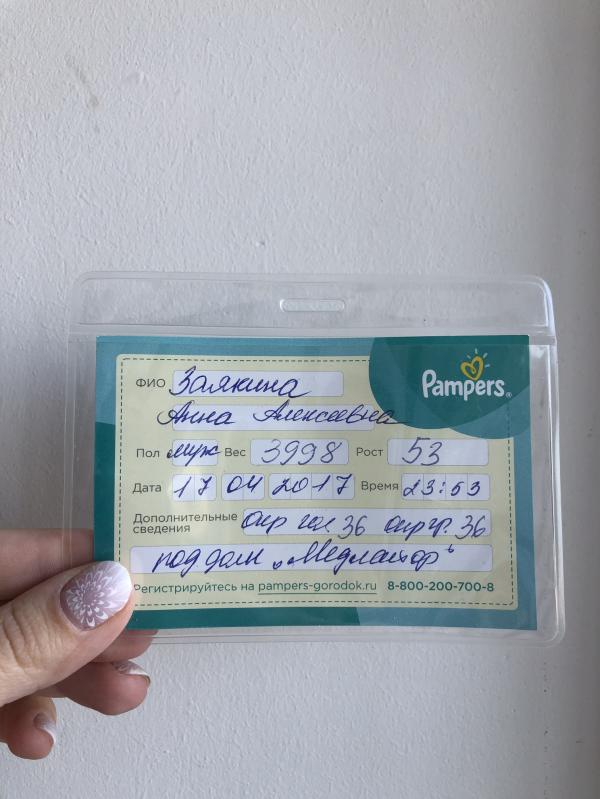 Pampers®
ФИО Заякина
Анна Алексеевна
Пол муж Вес 3998 Рост 53
Дата 17 04 2017 Время 23:53
Дополнительные сведения окр гол. 36 окр гр. 36
род дом „Медлайф"
Регистрируйтесь на pampers-gorodok.ru 8-800-200-700-8